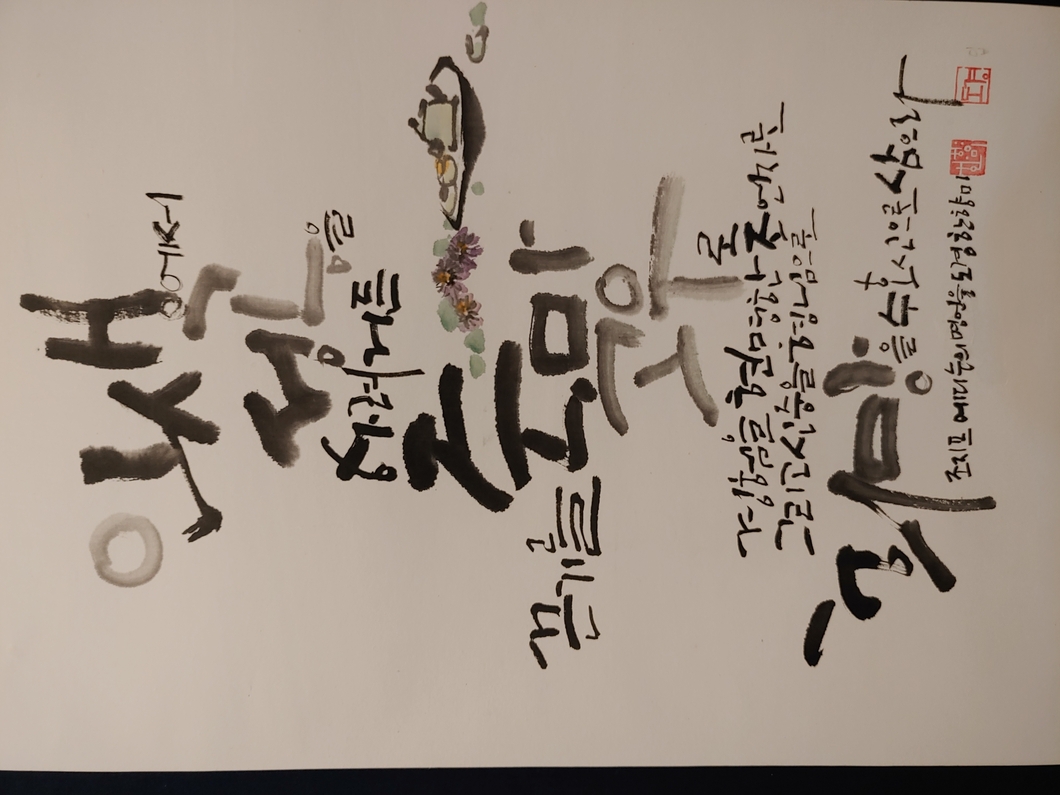 인생에서
성공을
하려거든
끈기를 죽마
고우로
경험을 현명한 조언자로
그리고 신중을 형님으로
희망을 수호신으로 삼으라
조지프 에디슨의 명언을 도경 한향미
도경